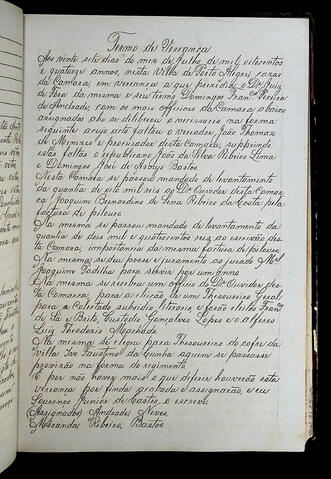 Termo de Vereança
Aos vinte sete dias do mez de Julho de mil oitocentos
e quatorze annos, nesta Villa de Porto Alegre cazas
da Camara, em vereança a que prezidio o Dr. Juiz
de Fora da mesma e seu termo Domingos Franco Pereira
de Andrade, com os mais officiaes da Camara abaixo
assignados ahi se deliberou o necessario, na forma
seguinte a cujo acto faltou o vereador João Thomaz
de Menezes e procurador desta Camara, supprindo
estas faltas o republicano João da Silva Ribeiro Lima
e Domingos José de Araujo Bastos
Nesta Camara se passou mandado de levantamento
da quantia de oito mil reis ao Dr. Ouvidor desta Comar
ca Joaquim Bernardino de Sena Ribeiro da Costa, pela
factura de pelouro
Na mesma se passou mandado de levantamento da
quantia de dois mil e quatrocentos reis ao escrivão des
ta Camara, importancia da mesma factura de pelouro
Na mesma se deu posse e juramento ao jurado Mel
Joaquim Padilha para servir por um anno
Na mesma se recebeu um officio do Dr. Ouvidor des
ta Comarca, para a eleição de um Thesoureiro Geral
para a Colletado subsidio literario, e forão eleitos Franco
de Sá e Brito, Custodio Gonçalves Lopes e o alferes
Luiz Theodosio Machado
Na mesma se elegeu para Thesoureiro do cofre da
villa Ivo Faustino da Cunha a quem se passasse
provizão na forma do regimento
E por não haver mais o que diferir houverão esta
vereança por finda e assignarão, e eu
Lourenço Junior de Castro, o escrevi
Assignados Andrade Neves
Miranda Ribeiro Bastos